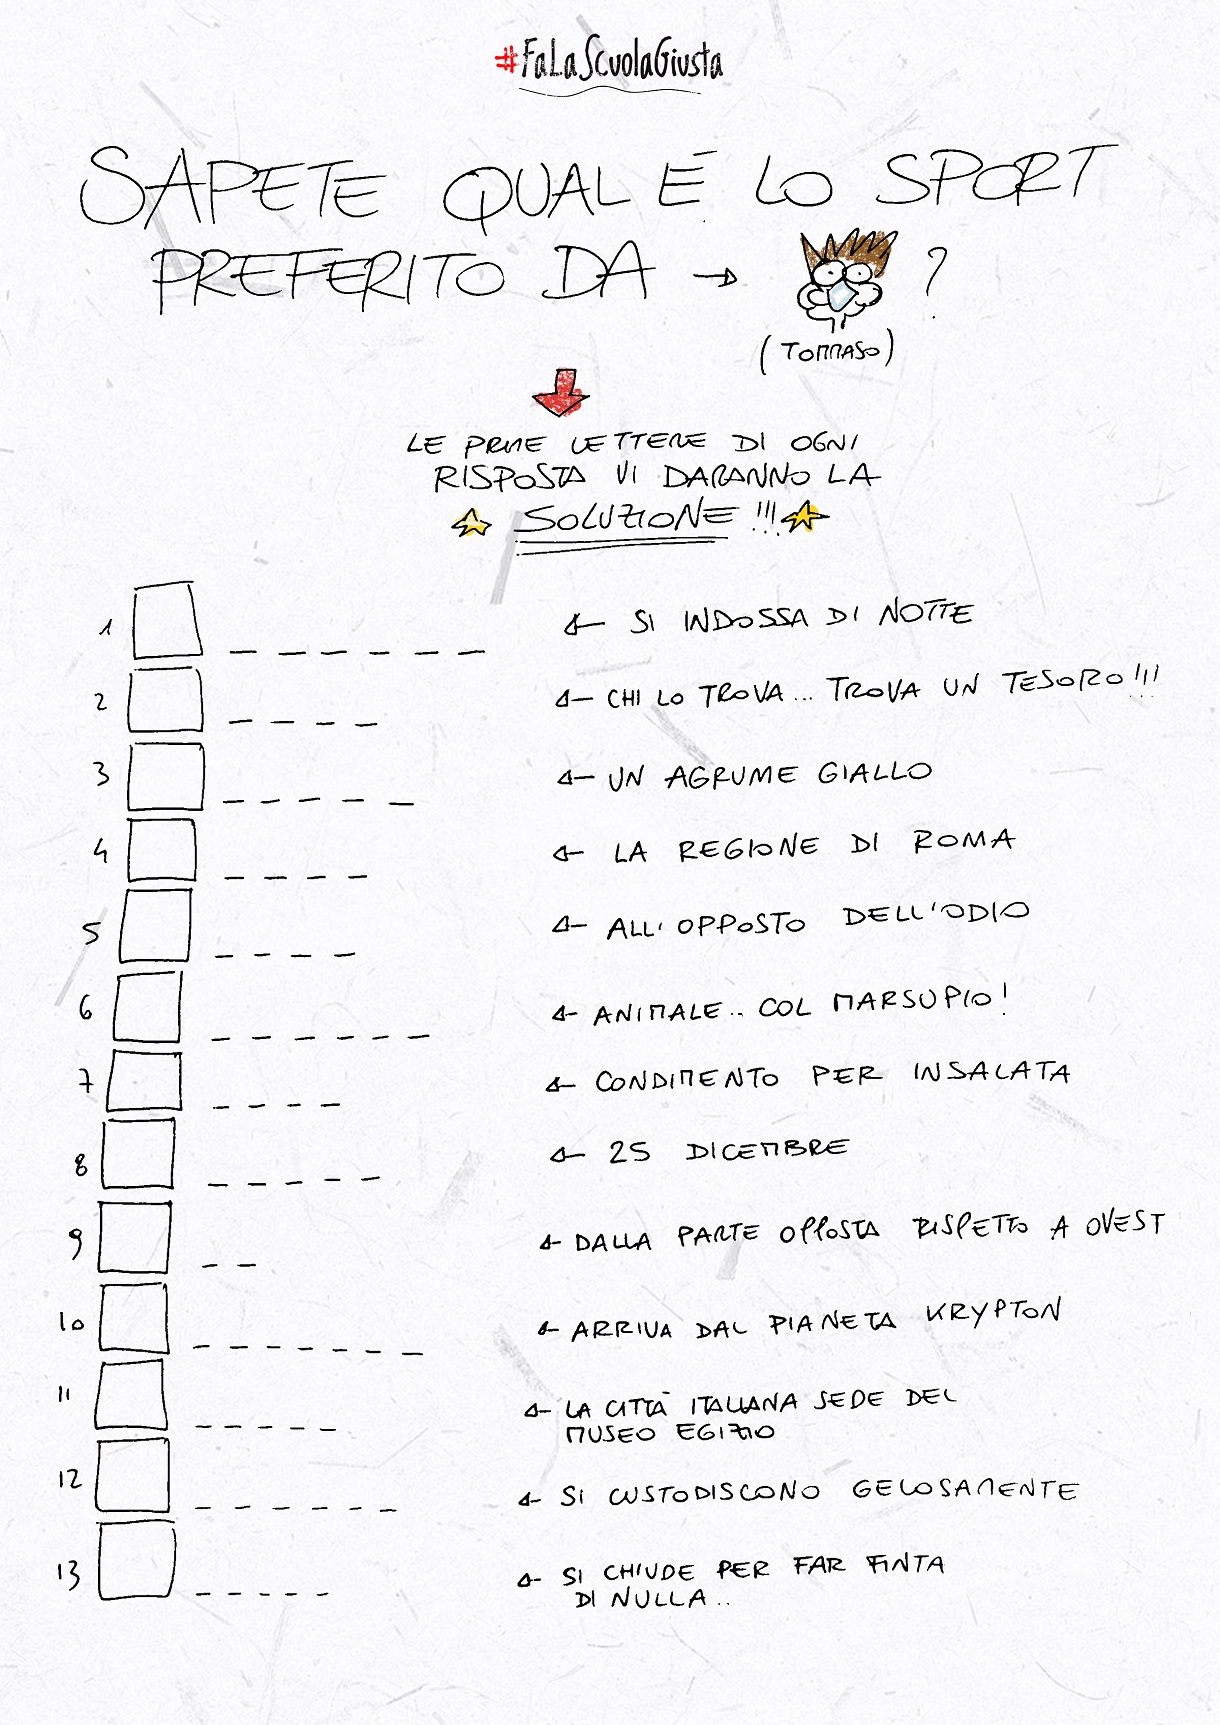 #FaLaScuolaGiusta
SAPETE QUAL È LO SPORT
PREFERITO DA → ?
(TOMMASO)
LE PRIME LETTERE DI OGNI
RISPOSTA VI DARANNO LA
SOLUZIONE !!!
1 _ _ _ _ _ _ ← SI INDOSSA DI NOTTE
2 _ _ _ _ ← CHI LO TROVA... TROVA UN TESORO!!!
3 _ _ _ _ _ ← UN AGRUME GIALLO
4 _ _ _ _ ← LA REGIONE DI ROMA
5 _ _ _ _ ← ALL'OPPOSTO DELL'ODIO
6 _ _ _ _ _ _ ← ANIMALE.. COL MARSUPIO!
7 _ _ _ _ ← CONDIMENTO PER INSALATA
8 _ _ _ _ _ ← 25 DICEMBRE
9 _ _ ← DALLA PARTE OPPOSTA RISPETTO A OVEST
10 _ _ _ _ _ _ _ ← ARRIVA DAL PIANETA KRYPTON
11 _ _ _ _ _ ← LA CITTÀ ITALIANA SEDE DEL
MUSEO EGIZIO
12 _ _ _ _ _ _ ← SI CUSTODISCONO GELOSAMENTE
13 _ _ _ _ _ ← SI CHIUDE PER FAR FINTA
DI NULLA..